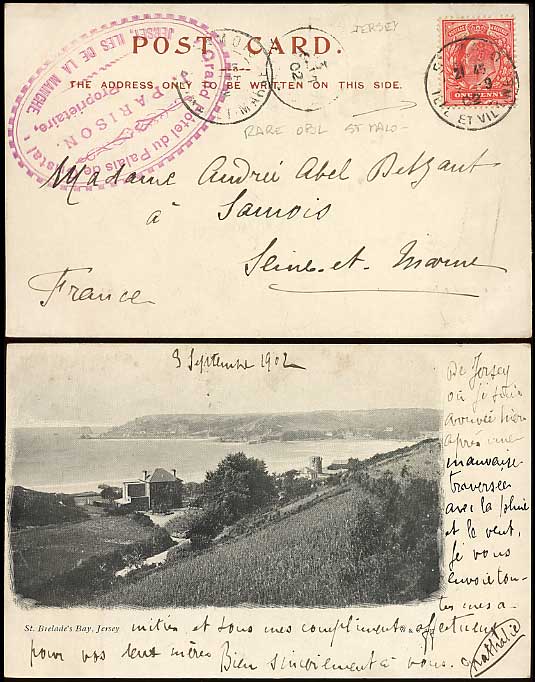 POST CARD.
THE ADDRESS ONLY TO BE WRITTEN ON THIS SIDE.
JERSEY
RARE OBL ST MALO -
Grand Hôtel du Palais de Cristal
JERSEY, ILES DE LA MANCHE.
PARISON
Propriétaire,
ONE PENNY
ILLE ET VIL
Madame André Abel
à Samois
Seine-et-Marne
France
3 Septembre 1902
De Jersey
où je suis
arrivée hier
après une
mauvaise
traversée
avec la pluie
et le vent,
je vous
envoie tou-
tes mes a-
St. Brelade's Bay, Jersey
mitiés et tous mes compliments affectueux
pour vos deux mères Bien sincèrement à vous.
Nathalie